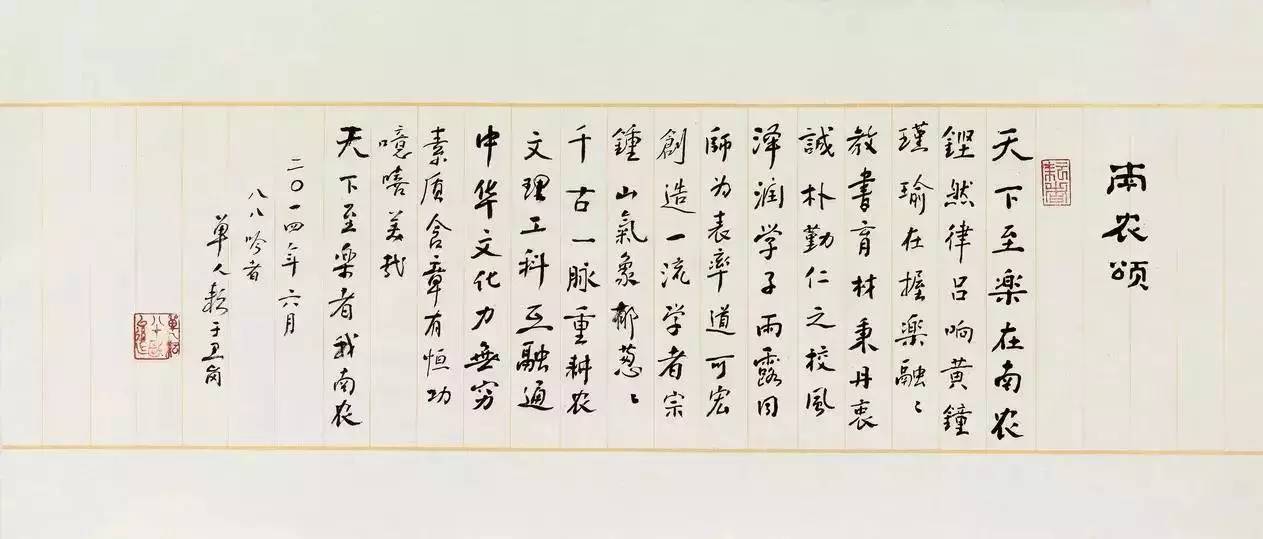 南农颂
天下至樂在南农
铿然律吕响黄鐘
瑾瑜在握樂融〻
教書育材秉丹衷
誠朴勤仁之校風
泽润学子雨露同
師为表率道可宏
創造一流学者宗
鍾山氣象郁葱〻
千古一脉重耕农
文理工科互融通
中华文化力無穷
素质含章有恒功
噫嘻美哉
天下至樂者我南农
二〇一四年六月
八八吟者
单人耘于卫岗